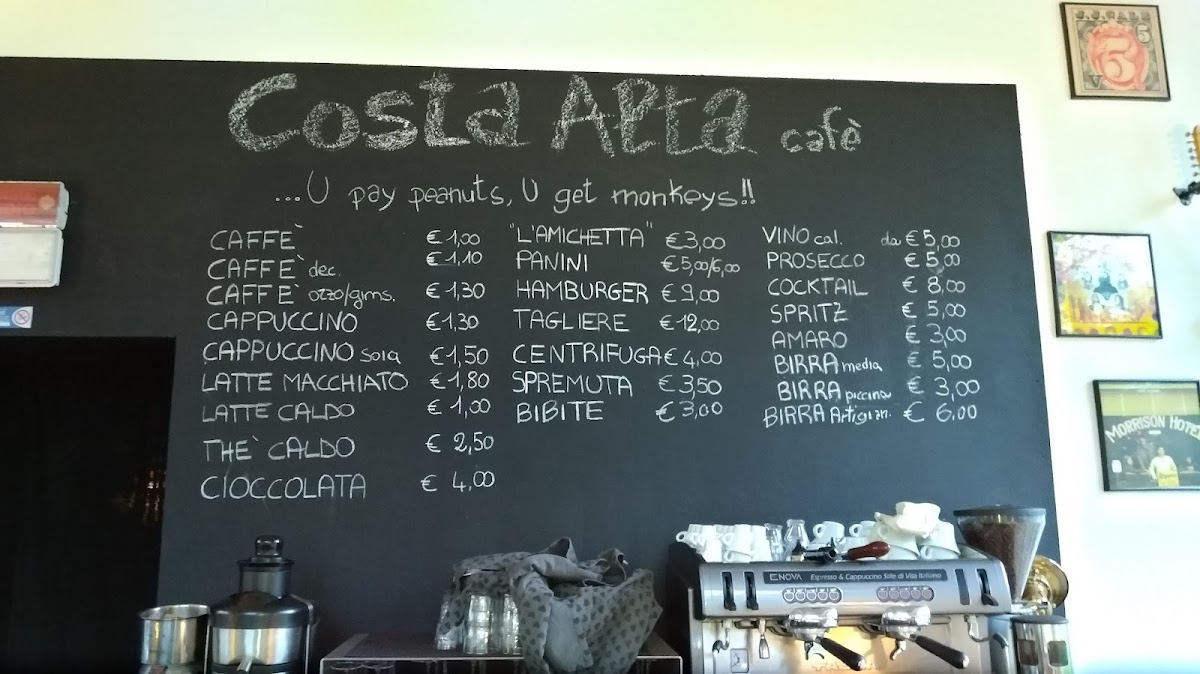 Costa Alta cafè
...U pay peanuts, U get monkeys!!
CAFFÈ €1,00
CAFFÈ dec. €1,10
CAFFÈ orzo/gins. €1,30
CAPPUCCINO €1,30
CAPPUCCINO soia €1,50
LATTE MACCHIATO €1,80
LATTE CALDO €1,00
THE' CALDO €2,50
CIOCCOLATA €4,00
"L'AMICHETTA" €3,00
PANINI €5,00/6,00
HAMBURGER €9,00
TAGLIERE €12,00
CENTRIFUGA €4,00
SPREMUTA €3,50
BIBITE €3,00
VINO cal. da €5,00
PROSECCO €5,00
COCKTAIL €8,00
SPRITZ €5,00
AMARO €3,00
BIRRA media €5,00
BIRRA piccina €3,00
BIRRA Artigian. €6,00
J.J.CALE
5
V 5
MORRISON HOTEL
ENOVA Espresso & Cappuccino Stile di Vita Italiano